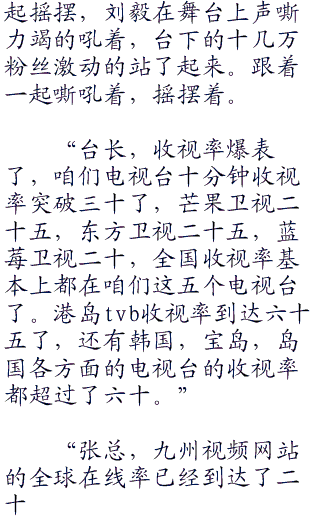 起摇摆，刘毅在舞台上声嘶
力竭的吼着，台下的十几万
粉丝激动的站了起来。跟着
一起嘶吼着，摇摆着。
“台长，收视率爆表
了，咱们电视台十分钟收视
率突破三十了，芒果卫视二
十五，东方卫视二十五，蓝
莓卫视二十，全国收视率基
本上都在咱们这五个电视台
了。港岛tvb收视率到达六十
五了，还有韩国，宝岛，岛
国各方面的电视台的收视率
都超过了六十。”
“张总，九州视频网站
的全球在线率已经到达了二
十